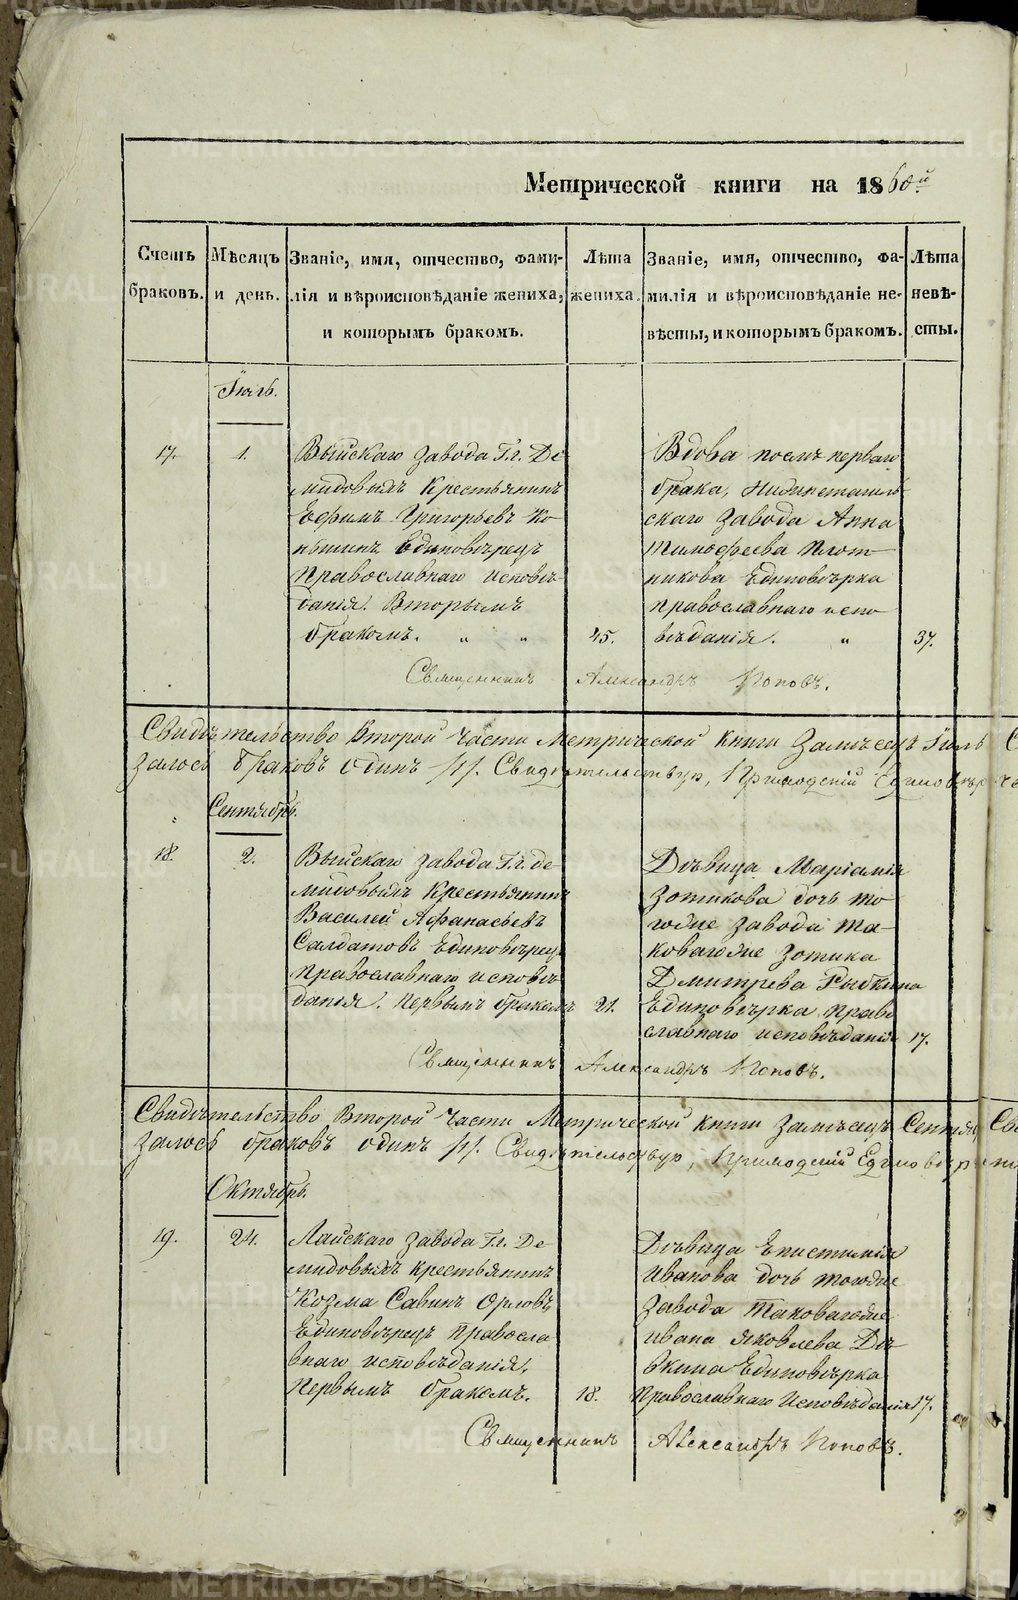 Метрической книги на 1860й
Счетъ браковъ.
Мѣсяцъ и день.
Званіе, имя, отчество, фами-
лія и вѣроисповѣданіе жениха,
и которымъ бракомъ.
Лѣта жениха.
Званіе, имя, отчество, фа-
милія и вѣроисповѣданіе не-
вѣсты, и которымъ бракомъ.
Лѣта невѣ-
сты.
Іюль.
17.
1.
Выйскаго завода Гг. Де
мидовыхъ Крестьянинъ
Ефимъ Григорьевъ Ко-
нышинъ Единовѣрецъ
Православнаго исповѣ-
данія. Вторымъ
бракомъ. „ „
45.
Вдова послѣ перваго
брака, Нижнетагиль
скаго завода Анна
Тимофеева Плот-
никова Единовѣрка
православнаго испо
вѣданія. „
37.
Священникъ Александръ Поповъ.
Свидѣтельство Второй части Метрической Книги За мѣсецъ Іюль
залось браковъ одинъ /1/. Свидѣтельствую, Приходскій
Сентябрь.
18.
2.
Выйскаго завода Гг. Де-
мидовыхъ Крестьянинъ
Василей Афанасьевъ
Салдатовъ Единовѣрецъ
Православнаго исповѣ
данія. Первымъ бракомъ
21.
Дѣвица Маріамія
Зотикова дочь то
гоже завода та-
коваго же Зотика
Дмитрева Рыбкина
Единовѣрка право
славнаго исповѣданія
17.
Священникъ Александръ Поповъ.
Свидѣтельство Второй части Метрической Книги За мѣсецъ
залось браковъ одинъ /1/. Свидѣтельствую, Приходскій
Октябрь.
19.
24.
Лайскаго завода Гг. Де-
мидовыхъ крестьянинъ
Козма Савинъ Орловъ
Единовѣрецъ Правосла
внаго исповѣданія,
Первымъ бракомъ.
18.
Дѣвица Епистимія
Иванова дочь тогоже
завода таковагоже
Ивана Яковлева Дѣ-
вкина Единовѣрка
Православнаго Исповѣданія
17.
Священникъ Александръ Поповъ.
METRIKI.GASO-URAL.RU